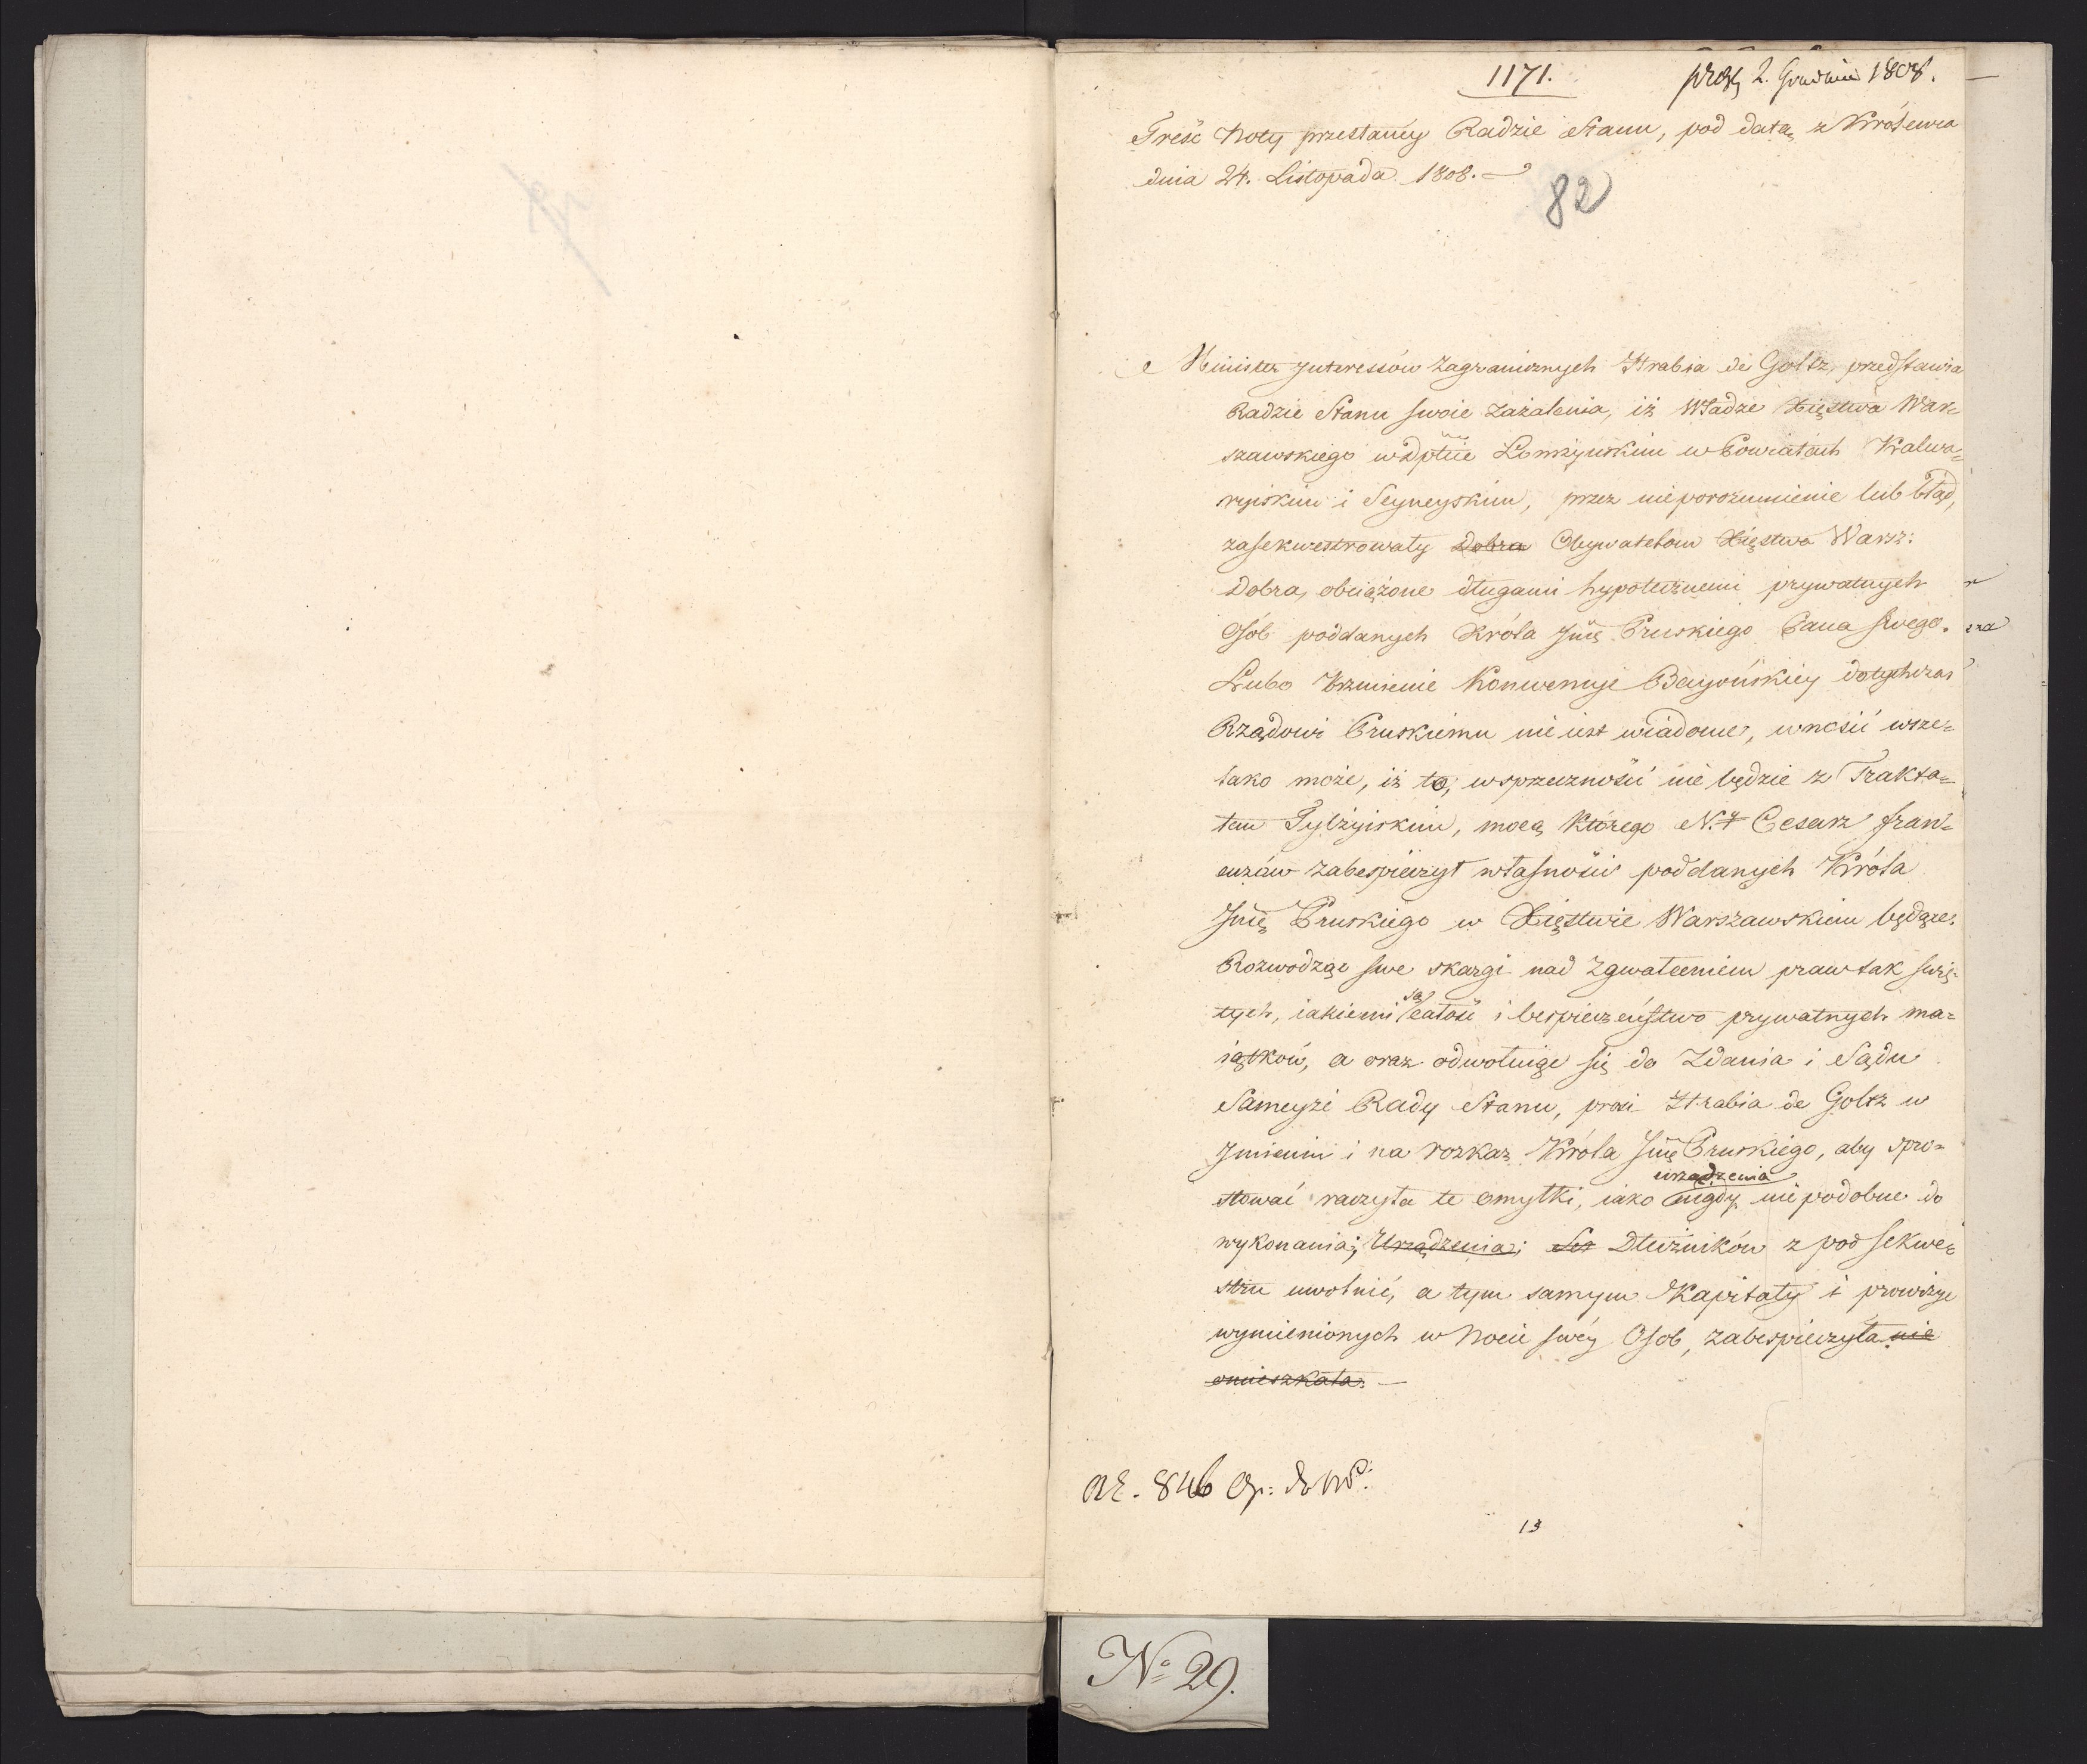 1171.
2. Grudnia 1808.
Treść Noty przesłanéy Radzie Stanu, pod datą z Królewca
dnia 24. Listopada 1808.
82
Minister Jnteressów Zagranicznych Hrabia de Goltz, przedstawia
Radzie Stanu swoie zażalenia, iż Władze Xięstwa War=
szawskiego w Dptcie Łomżyńskim w Powiatach Kalwa=
ryiskim i Seyneyskim, przez nieporozumienie lub błąd,
zasekwestrowały Dobra Obywatelom Xięstwa Warsz:
Dobra, obciążone długami hypotecznemi prywatnych
Osób poddanych Króla Jmci Pruskiego Pana swego.
Lubo brzmienie Konwencyi Bayońskiéy dotychczas
Rządowi Pruskiemu nie iest wiadome, wnosić wsze=
lako może, iż to, w sprzeczności nie będzie z Trakta=
tem Tylżyiskim, mocą którego N. Cesarz Fran=
cuzów zabespieczył własności poddanych Króla
Jmci Pruskiego w Xięstwie Warszawskiem będące.
Rozwodząc swe skargi nad zgwałceniem praw tak świę=
tych, iakiemi są całość i bespieczeństwo prywatnych ma=
iątków, a oraz odwołuiąc się do Zdania i Sądu
Sameyże Rady Stanu, prosi Hrabia de Goltz w
Jmieniu i na rozkaz Króla Jmci Pruskiego, aby spro=
urządzenia
stować raczyła te omyłki, iako nigdy niepodobne do
wykonania; Urządzenia; Dłużników z pod sekwe=
stru uwolnić, a tym samym Kapitały i prowizye
wymienionych w Nocie swéy Osob, zabespieczyła nie
omieszkała.
846
13
No 29.